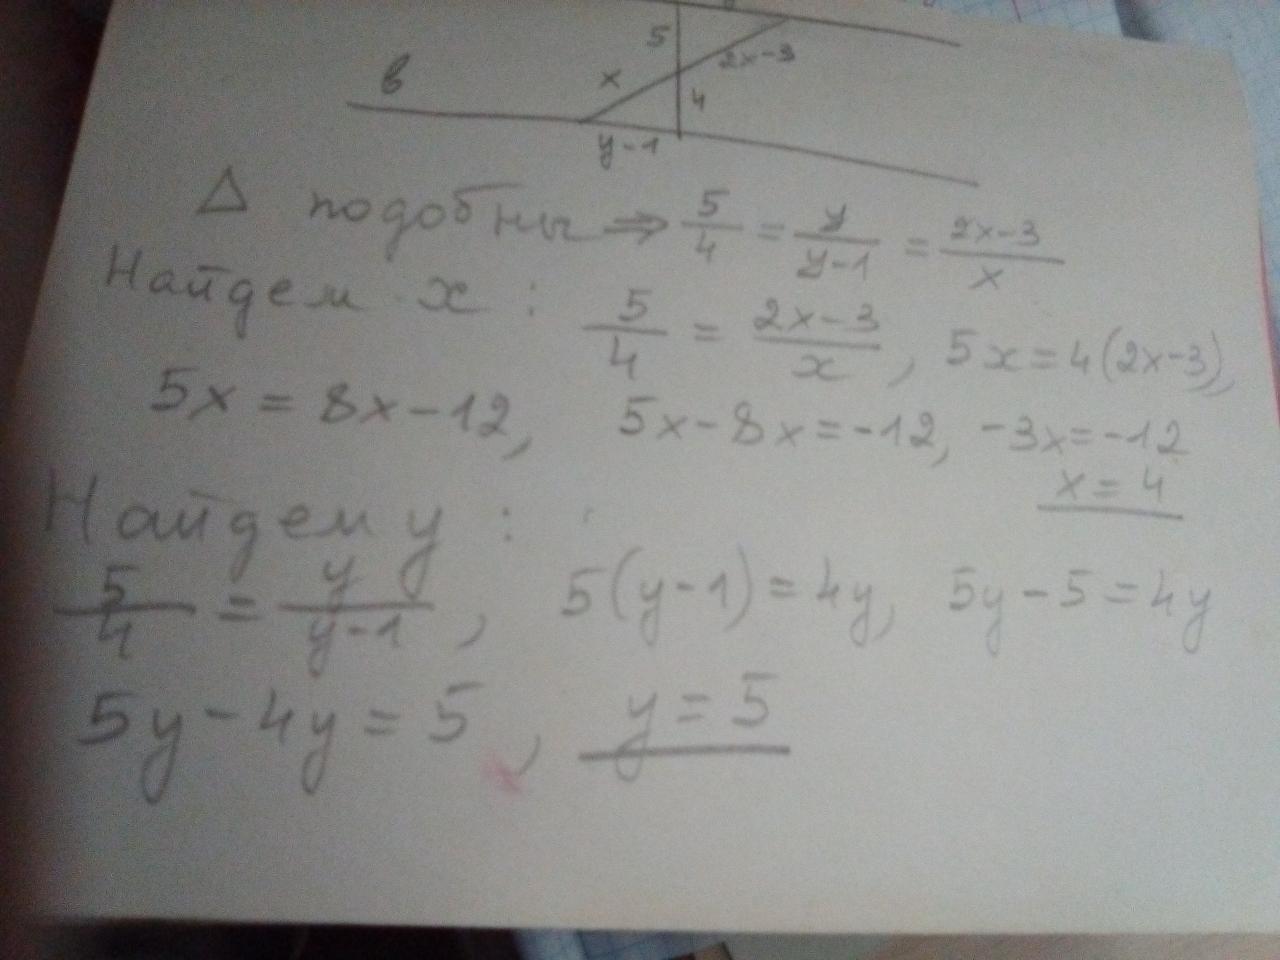 5
2x-3
в
x
4
y-1
Δ подобны ⇒ 5/4 = y/y-1 = 2x-3/x
Найдем x : 5/4 = 2x-3/x , 5x=4(2x-3),
5x = 8x-12, 5x-8x=-12, -3x=-12
x=4
Найдем y :
5/4 = y/y-1 , 5(y-1)=4y, 5y-5=4y
5y-4y=5 , y=5